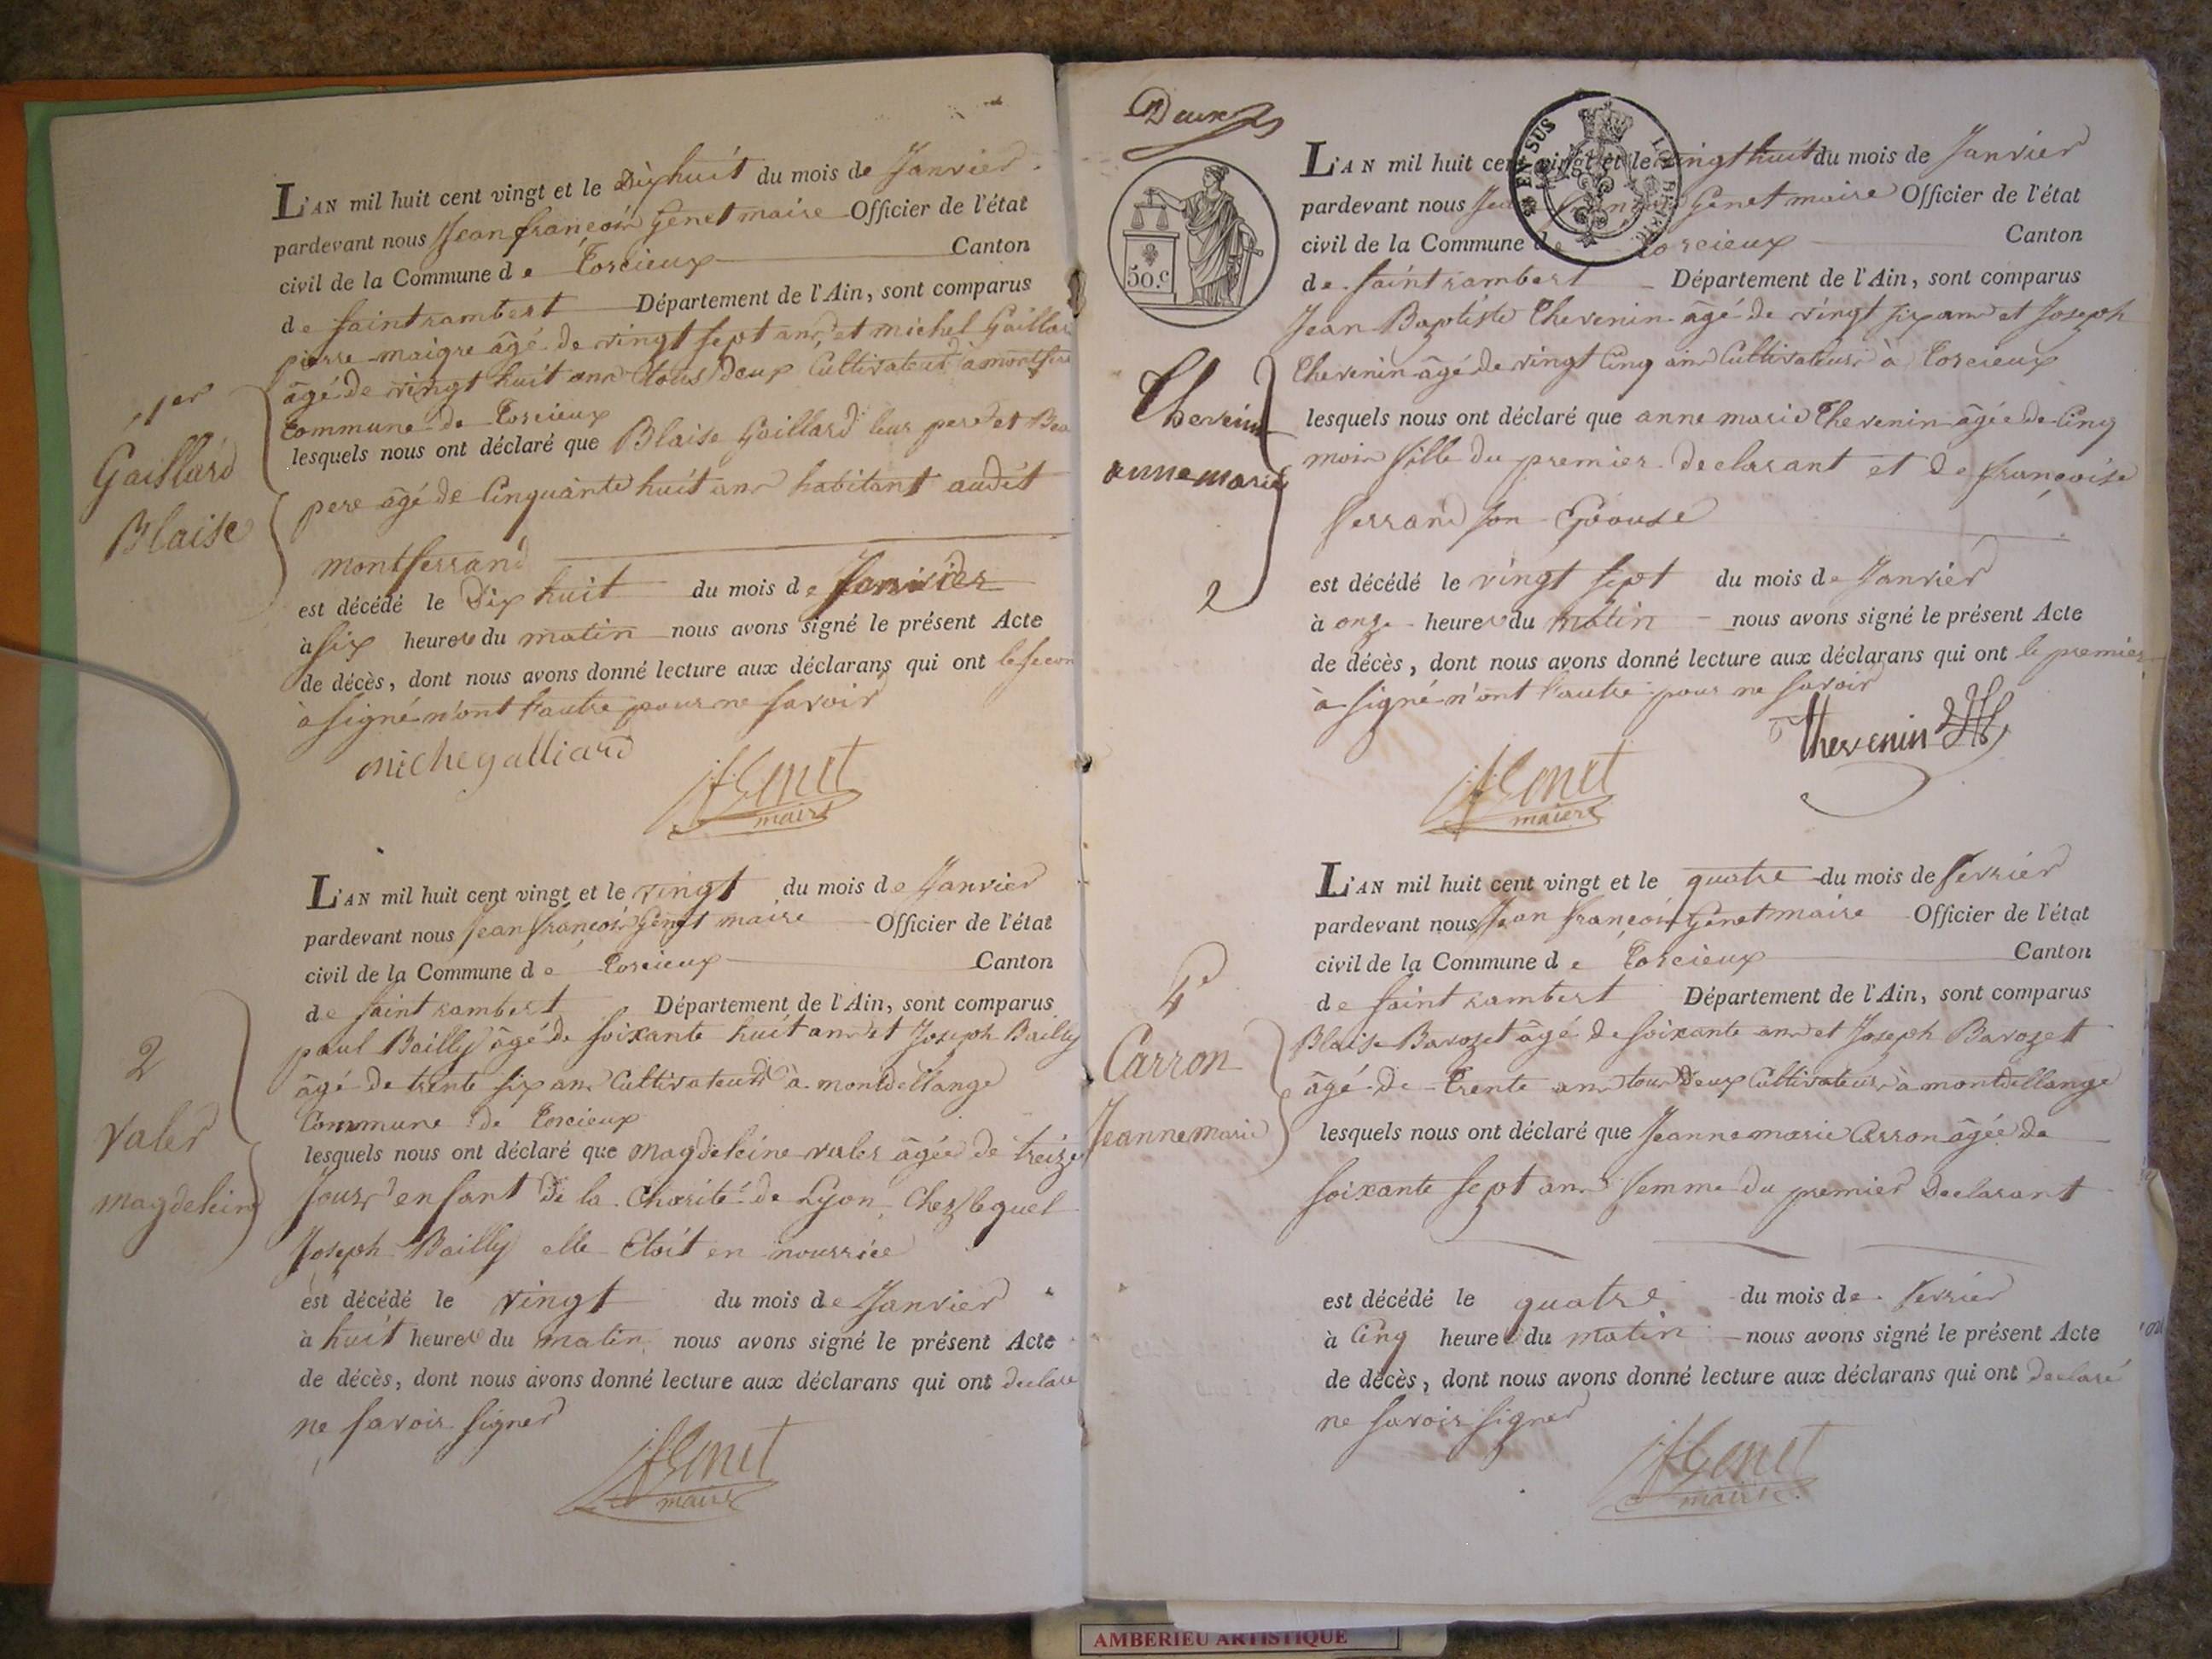 1er
Gaillard
Blaise
L'AN mil huit cent vingt et le Dix huit du mois de Janvier
pardevant nous Jean françois Genet maire Officier de l'état
civil de la Commune de Torcieux Canton
de saint rambert Département de l'Ain, sont comparus
pierre maigre âgé de vingt sept ans, et michel Gaillar
âgé de vingt huit ans tous deux Cultivateurs à montfer
commune de Torcieux
lesquels nous ont déclaré que Blaise Gaillard leur pere et Bea
pere âgé de Cinquante huit ans habitant audit
montferrand
est décédé le Dix huit du mois de Janvier
à six heures du matin nous avons signé le présent Acte
de décès, dont nous avons donné lecture aux déclarans qui ont le secon
à signé n'ont l'autre pour ne savoir
michegalliard
jfGenet
maire
2
Valer
magdelein
L'AN mil huit cent vingt et le vingt du mois de Janvier
pardevant nous Jean françois Genet maire Officier de l'état
civil de la Commune de Torcieux Canton
de saint rambert Département de l'Ain, sont comparus
paul Bailly âgé de soixante huit ans et Joseph Bailly
âgé de trente six ans Cultivateurs à montdellange
Commune de Torcieux
lesquels nous ont déclaré que magdeleine valer âgée de treize
Jours enfant de la Charité de Lyon, Chez lequel
Joseph Bailly elle Etoit en nourrice
est décédé le vingt du mois de Janvier
à huit heures du matin nous avons signé le présent Acte
de décès, dont nous avons donné lecture aux déclarans qui ont declaré
ne savoir signer
jfGenet
maire
Deux
50.c
Thevenin
anne marie
2
L'AN mil huit cent vingt et le vingt huit du mois de Janvier
pardevant nous Jean françois Genet maire Officier de l'état
civil de la Commune de Torcieux Canton
de saint rambert Département de l'Ain, sont comparus
Jean Baptiste Thevenin âgé de vingt six ans et Joseph
Thevenin âgé de vingt Cinq ans Cultivateurs à Torcieux
lesquels nous ont déclaré que anne marie Thevenin âgée de Cinq
mois fille du premier declarant et de françoise
ferrand son Epouse
est décédé le vingt sept du mois de Janvier
à onze heures du matin nous avons signé le présent Acte
de décès, dont nous avons donné lecture aux déclarans qui ont le premier
à signé n'ont l'autre pour ne savoir
Thevenin
jfGenet
maire
4e
Carron
Jeanne marie
L'AN mil huit cent vingt et le quatre du mois de fevrier
pardevant nous Jean françois Genet maire Officier de l'état
civil de la Commune de Torcieux Canton
de saint rambert Département de l'Ain, sont comparus
Blaise Barozet âgé de soixante ans et Joseph Barozet
âgé de trente ans tous Deux Cultivateurs à montdellange
lesquels nous ont déclaré que Jeanne marie Carron âgée de
soixante sept ans femme du premier Declarant
est décédé le quatre du mois de fevrier
à Cinq heures du matin nous avons signé le présent Acte
de décès, dont nous avons donné lecture aux déclarans qui ont declaré
ne savoir signer
jfGenet
maire
AMBERIEU ARTISTIQUE